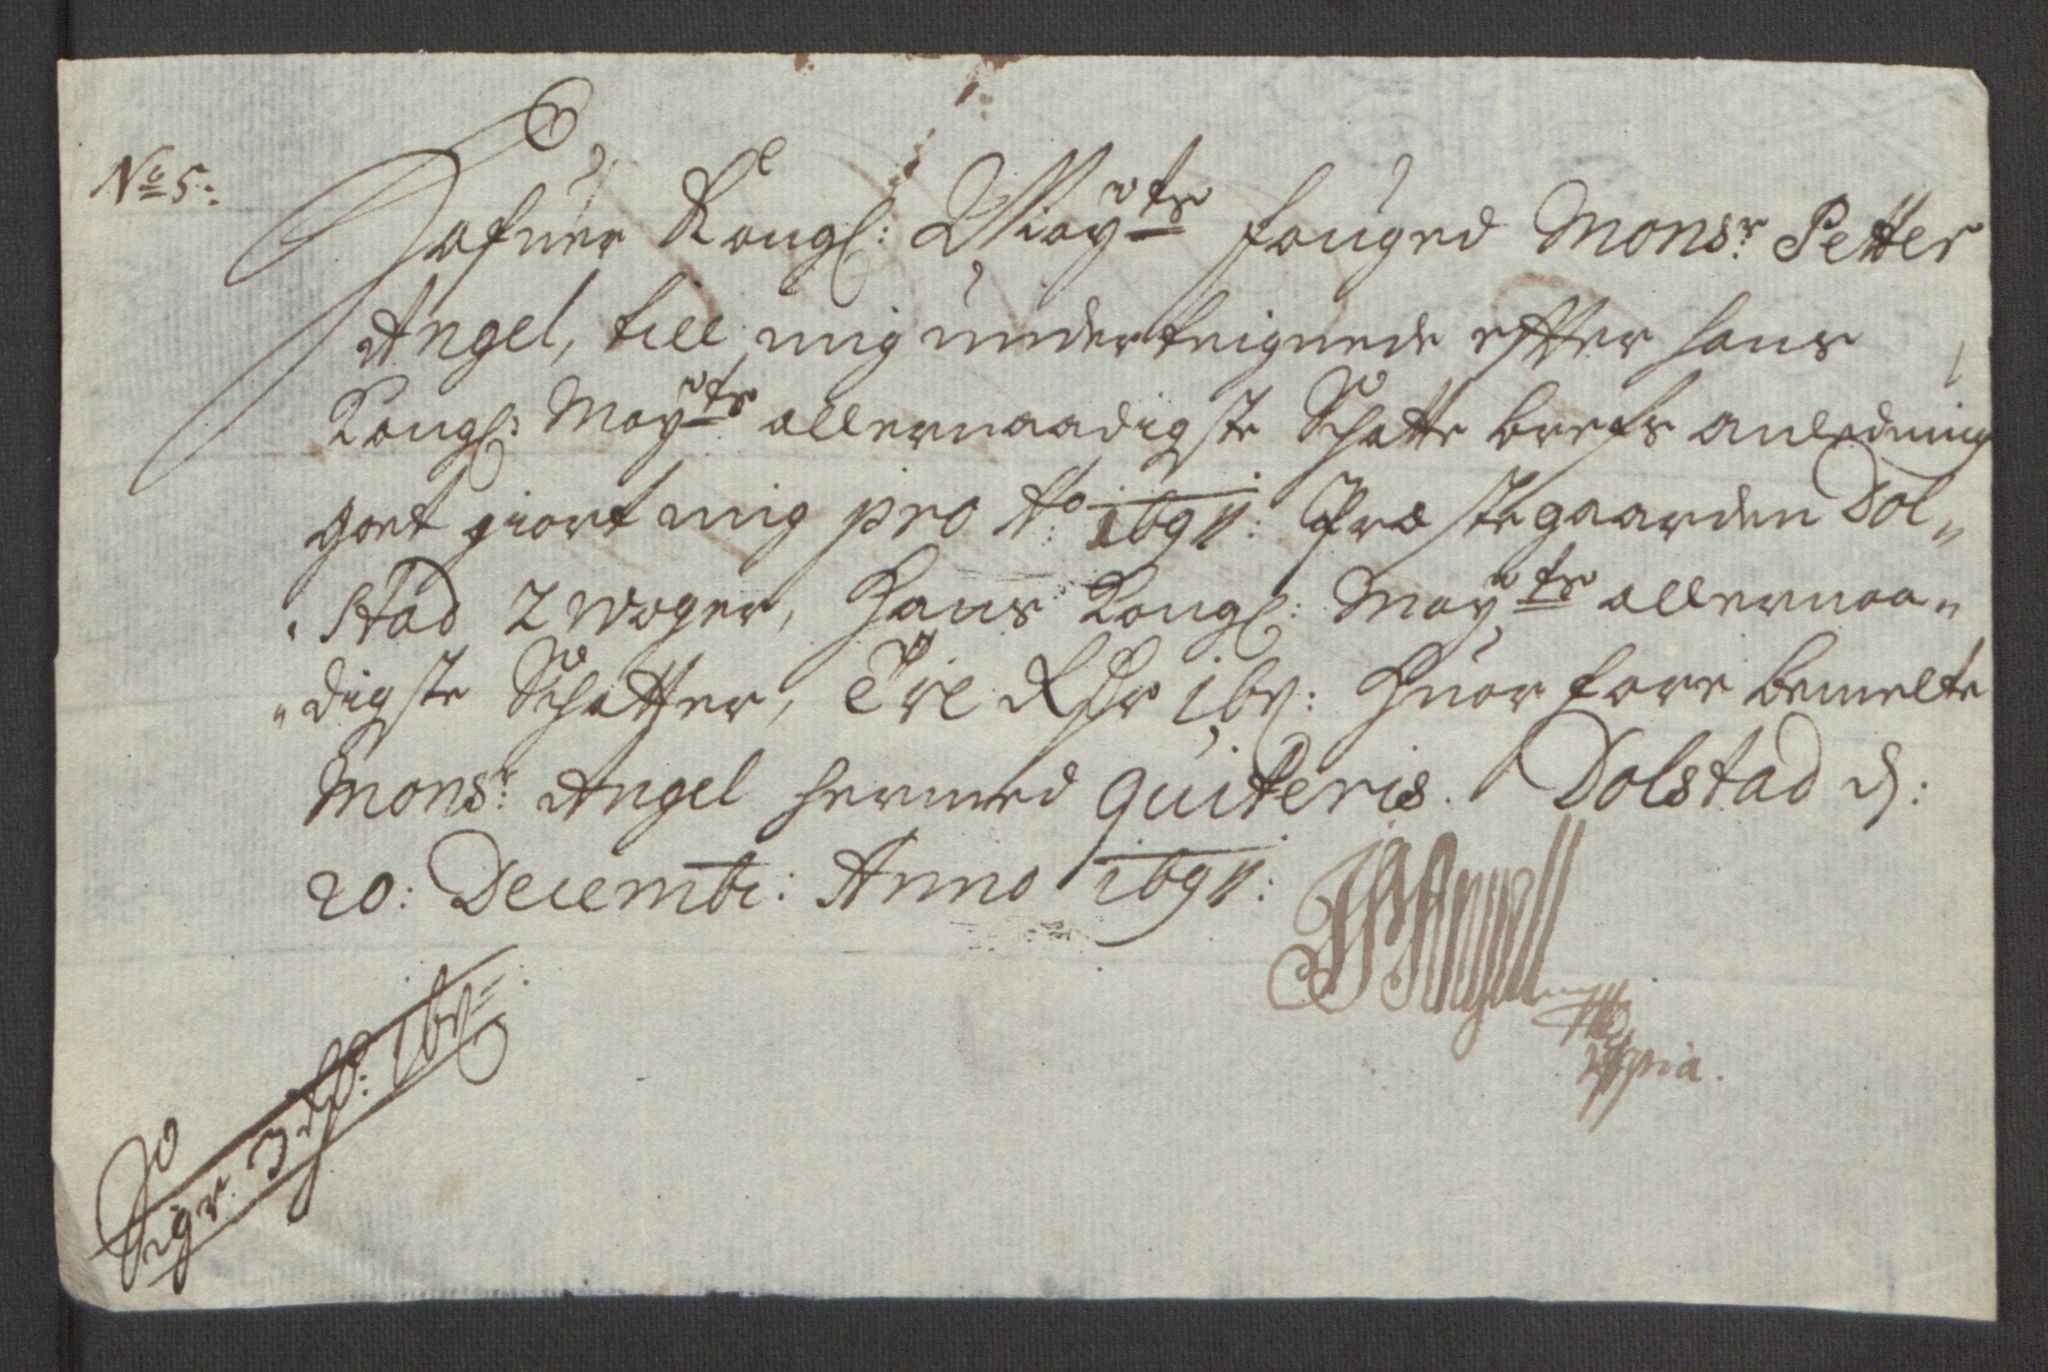 No 5:
Hafuer Kongl: Mayts fouged Monsr: Petter
Angel, till mig underteignede effter hans
Kongl: Mayts allernaadigste Schatte brefs anledning
goet giort mig pro Ao: 1691: Præstegaarden Dol„
„stad 2 woger, Hans Kongl: Mayts allernaa„
„digste Schatter, Tre Rdr 16 s: Huor fore bemelte
Monsr: Angel hermed quiteris. Dolstad d:
20: Decembr: Anno 1691:
Angell
mppria.
Siger 3 rdr: 16 s